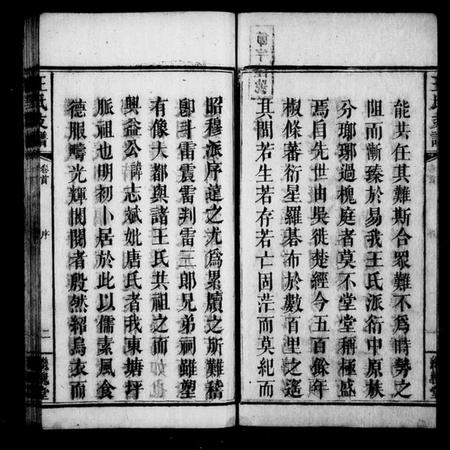 能其任其難斯合衆難不爲時勢之
阻而漸臻於易我王氏派衍中原族
分瑯琊過槐庭者莫不堂堂稱極盛
焉目先世由吳徙楚經今五百餘年
椒條蕃衍星羅碁布於數百里之遙
其間若生若存若亡固茫而莫紀而
昭穆派序蓮之尤爲累牘之所難稽
卽卦雷震雷判雷三郎兄弟祠雖塑
有像大都與諸王氏共祖之而如也
興益公諱志斌妣唐氏者我東塘坪
脈祖也明初卜居於此以儒素風食
德服疇光輝閥閱者殷然紹烏衣而
王氏支譜
卷首
序
二